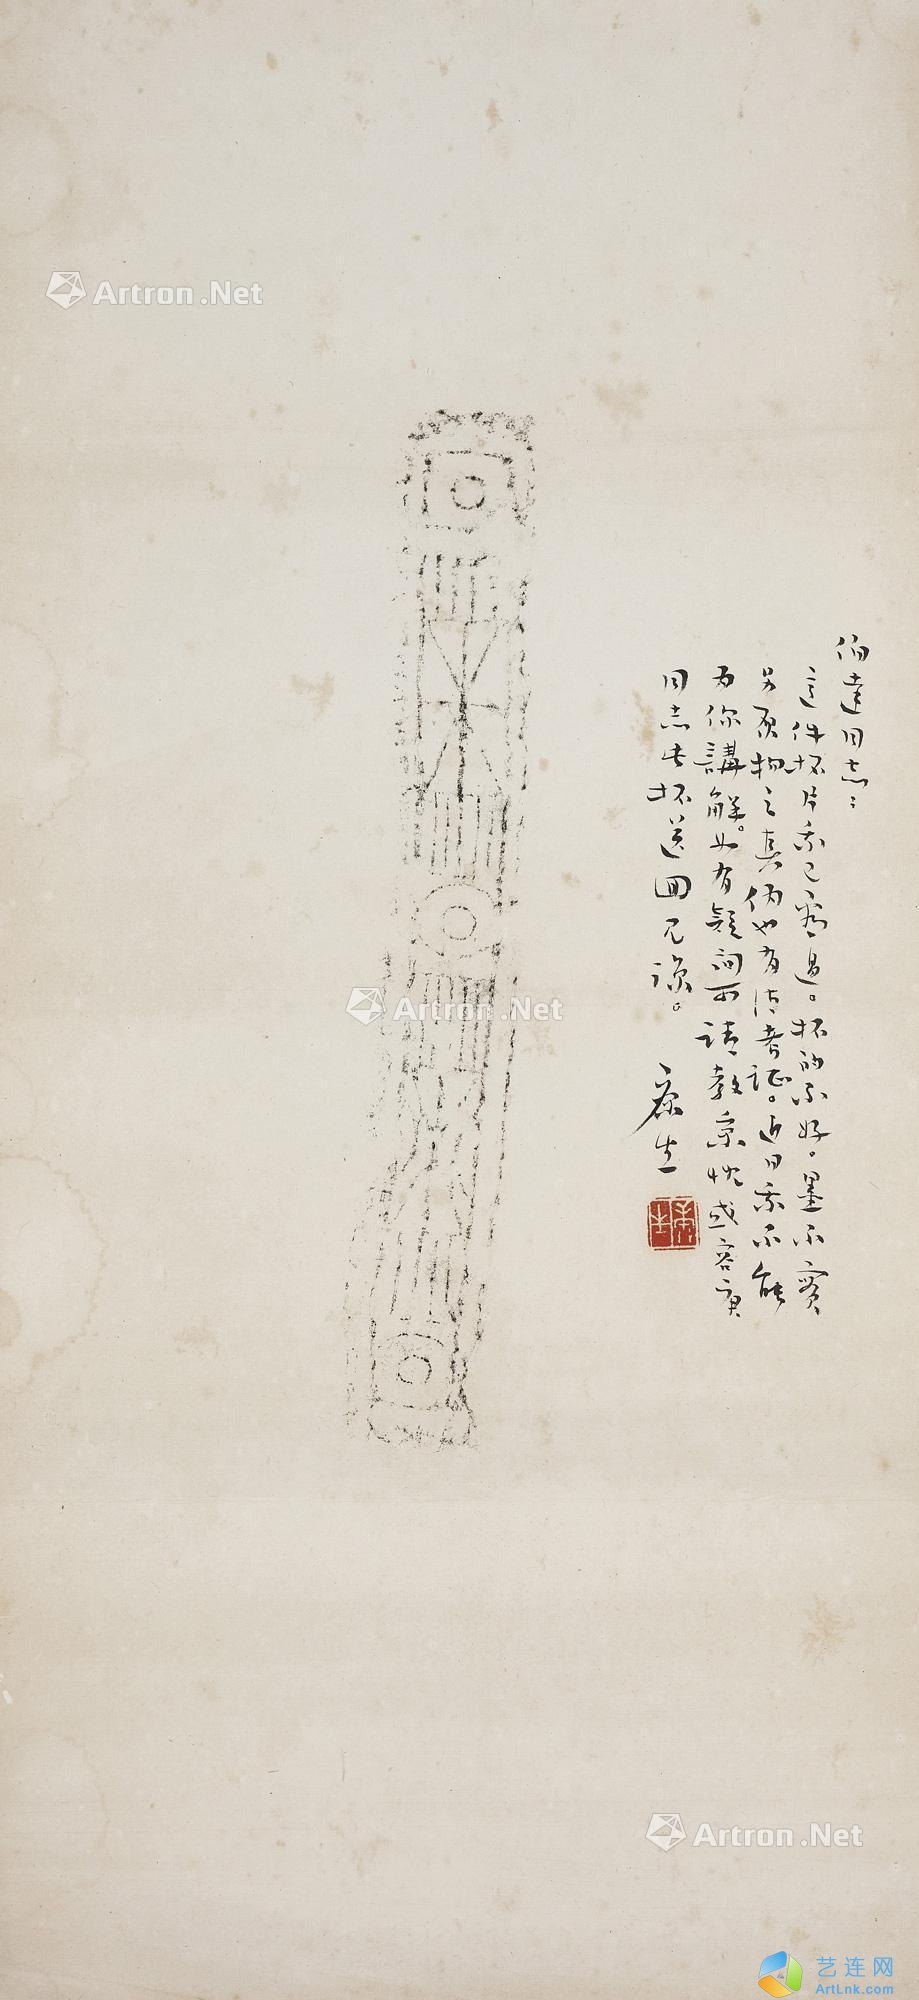 伯達同志：
這件拓片我已看過。拓的不好。墨不實
另原物之真偽也有待考証。近日我不能
為你講解。如有疑問可請教家忱或容庚
同志。此拓送回見諒。 康生
康生
Artron.Net
Artron.Net
Artron.Net
艺连网
ArtLnk.com